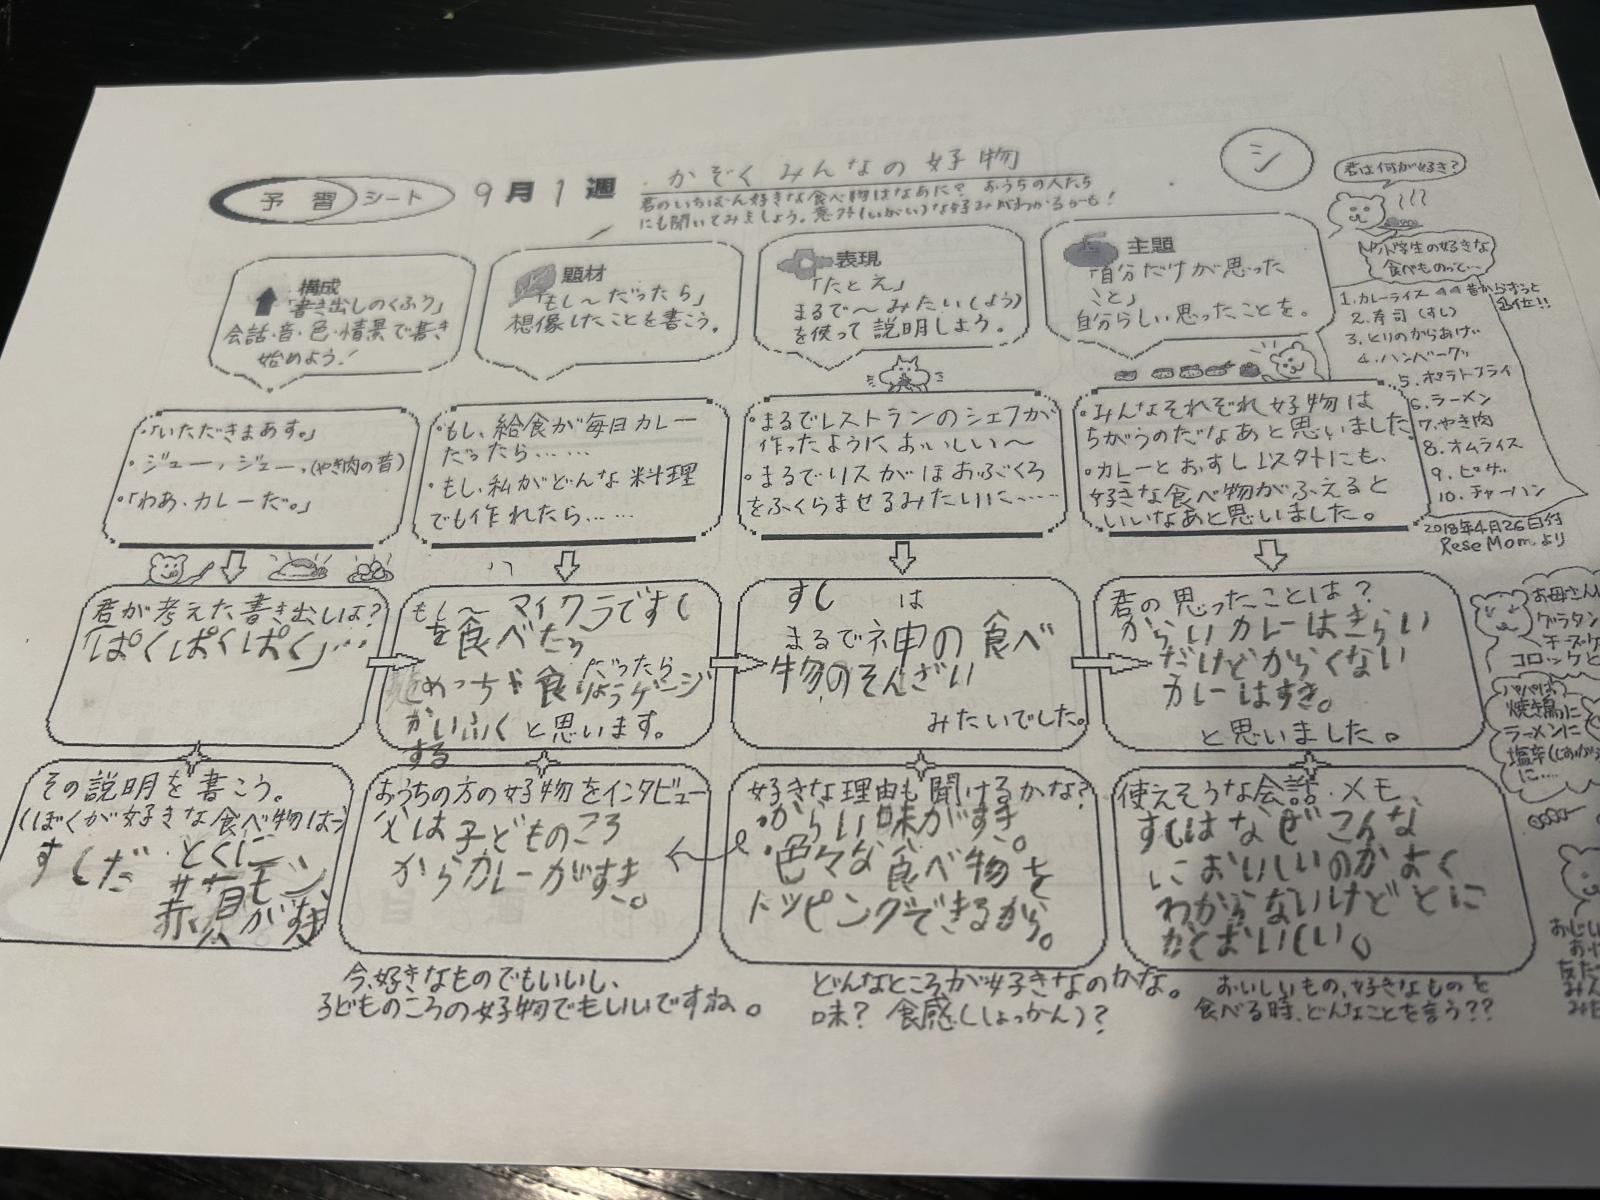 予習シート 9月1週
かぞくみんなの好物
君のいちばん好きな食べ物はなあに? おうちの人たち
にも聞いてみましょう。意外(いがい)な好みがわかるかも!
シ
君は何が好き?
小学生の好きな
食べものって…
1.カレーライス 昔からずっと
1位!!
2.寿司(すし)
3.とりのからあげ
4.ハンバーグ
5.ポテトフライ
6.ラーメン
7.やき肉
8.オムライス
9.ピザ
10.チャーハン
2018年4月26日付
ReseMom.より
構成
「書き出しのくふう」
会話・音・色・情景で書き
始めよう!
題材
「もし〜だったら」
想像したことを書こう。
表現
「たとえ」
まるで〜みたい(よう)
を使って説明しよう。
主題
「自分だけが思った
こと」
自分らしい思ったことを。
・「いただきまあす。」
・ジュー,ジュー,(やき肉の音)
・「わあ、カレーだ。」
・もし、給食が毎日カレー
だったら……
・もし、私がどんな料理
でも作れたら……
・まるでレストランのシェフが
作ったようにおいしい〜
・まるでリスがほおぶくろ
をふくらませるみたいに……
・みんなそれぞれ好物は
ちがうのだなあと思いました
・カレーとおすし以外にも、
好きな食べ物がふえると
いいなあと思いました。
君が考えた書き出しは?
「ぱくぱくぱく」…
もし〜マイクラですし
を食べたら
だったら
めっちゃ食りょうゲージ
かいふく と思います。
する
すし は
まるで神の食べ
物のそんざい
みたいでした。
君の思ったことは?
からいカレーはきらい
だけどからくない
カレーはすき。
と思いました。
その説明を書こう。
(ぼくが好きな食べ物は〜)
すしだ とくに
サーモン、
赤貝がすき
おうちの方の好物をインタビュー
父は子どものころ
からカレーがすき。
好きな理由も聞けるかな?
・からい味がすき。
・色々な食べ物を
トッピングできるから。
使えそうな会話・メモ
すしはなぜこんな
においしいのかよく
わからないけどとに
かくおいしい。
今、好きなものでもいいし、
子どものころの好物でもいいですね。
どんなところが好きなのかな。
味? 食感(しょっかん)?
おいしいもの、好きなものを
食べる時、どんなことを言う??
お母さんは
グラタン
チーズケ
コロッケと
パパは
焼き鳥に
ラーメンに
塩辛(しおから)
に……